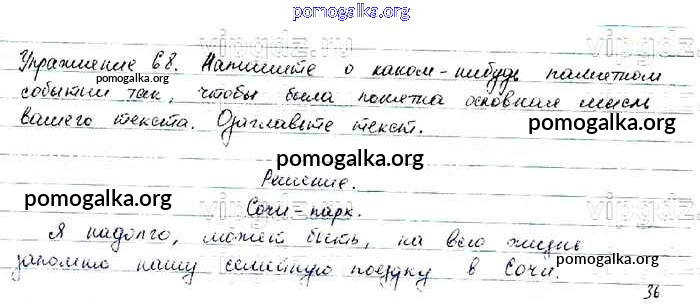 pomogalka.org
Упражнение 68. Напишите о каком-нибудь памятном
pomogalka.org
событии так, чтобы была понятна основная мысль
вашего текста. Озаглавьте текст.
pomogalka.org
pomogalka.org
Решение.
pomogalka.org
pomogalka.org
Сочи-парк.
Я надолго, может быть, на всю жизнь
запомню нашу семейную поездку в Сочи.
36